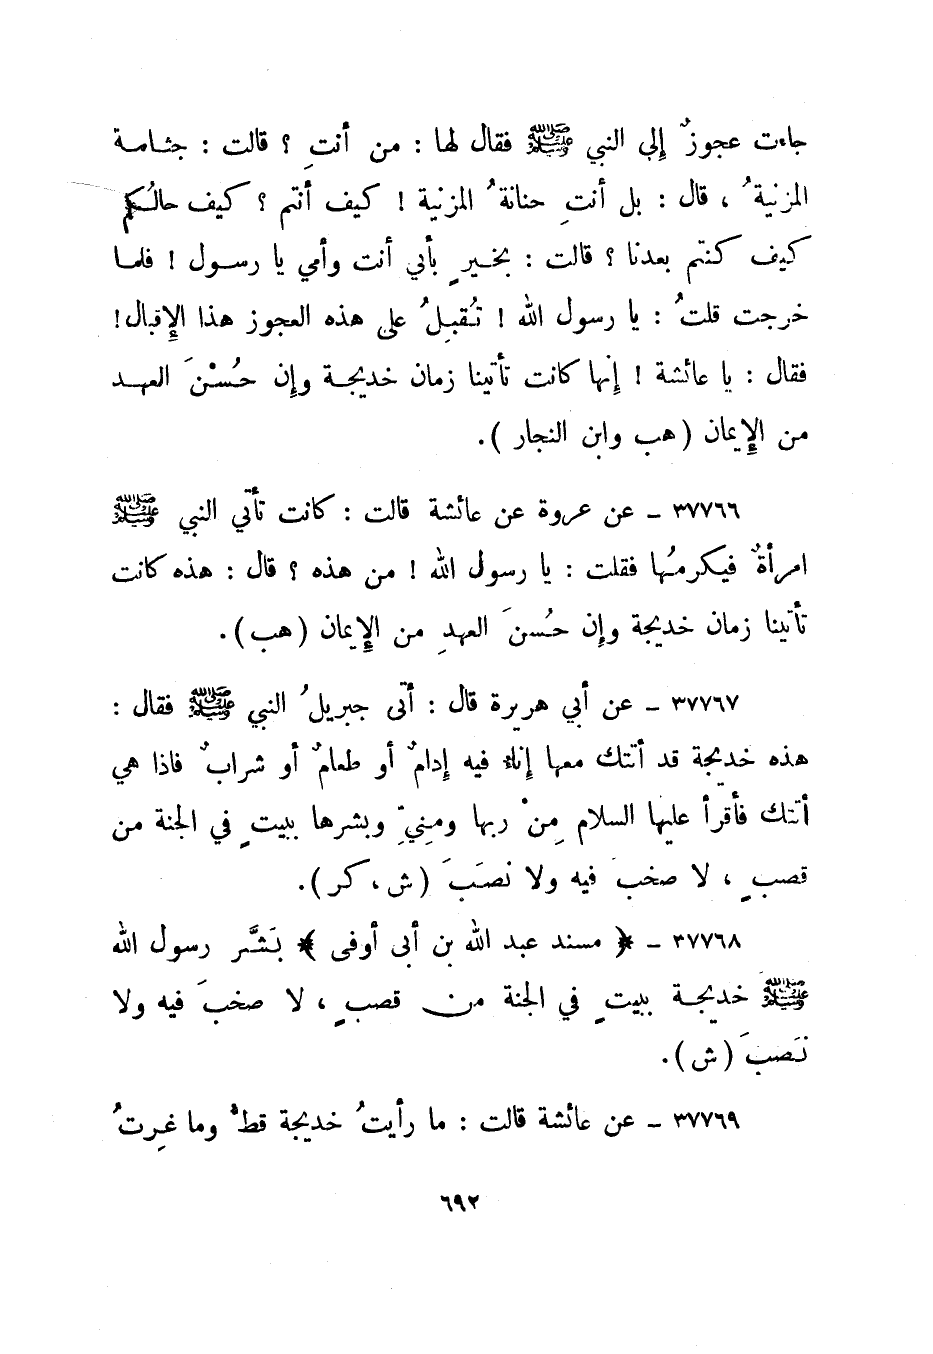 جاءت عجوزٌ إلى النبي ﷺ فقال لها : من أنتِ ؟ قالت : جثامة
المزنيةُ ، قال : بل أنتِ حنانةُ المزنية ! كيف أنتم ؟ كيف حالُكم
كيف كنتم بعدنا ؟ قالت : بخيرٍ بأبي أنت وأمي يا رسول ! فلما
خرجت قلتُ : يا رسول الله ! تُقبِلُ على هذه العجوز هذا الإقبال!
فقال : يا عائشة ! إنها كانت تأتينا زمان خديجة وإن حُسْنَ العهد
من الإيمان ( هب وابن النجار ).
٣٧٧٦٦ ـ عن عروة عن عائشة قالت : كانت تأتي النبي ﷺ
امرأةٌ فيكرمُها فقلت : يا رسول الله ! من هذه ؟ قال : هذه كانت
تأتينا زمان خديجة وإن حُسنَ العهدِ من الإيمان ( هب ).
٣٧٧٦٧ ـ عن أبي هريرة قال : أتى جبريلُ النبي ﷺ فقال :
هذه خديجة قد أتتك معها إناء فيه إدامٌ أو طعامٌ أو شرابٌ فاذا هي
أتتك فأقرأ عليها السلام مِنْ ربها ومِنيِّ وبشرها ببيتٍ في الجنة من
قصبٍ ، لا صخبَ فيه ولا نصَبَ ( ش ، كر ).
٣٧٧٦٨ ـ ﴿ مسند عبد الله بن أبى أوفى ﴾ بَشَّر رسول الله
ﷺ خديجة ببيتٍ في الجنة من قصبٍ ، لا صخبَ فيه ولا
نَصبَ ( ش ).
٣٧٧٦٩ ـ عن عائشة قالت : ما رأيتُ خديجة قطُّ وما غِرتُ
٦٩٢